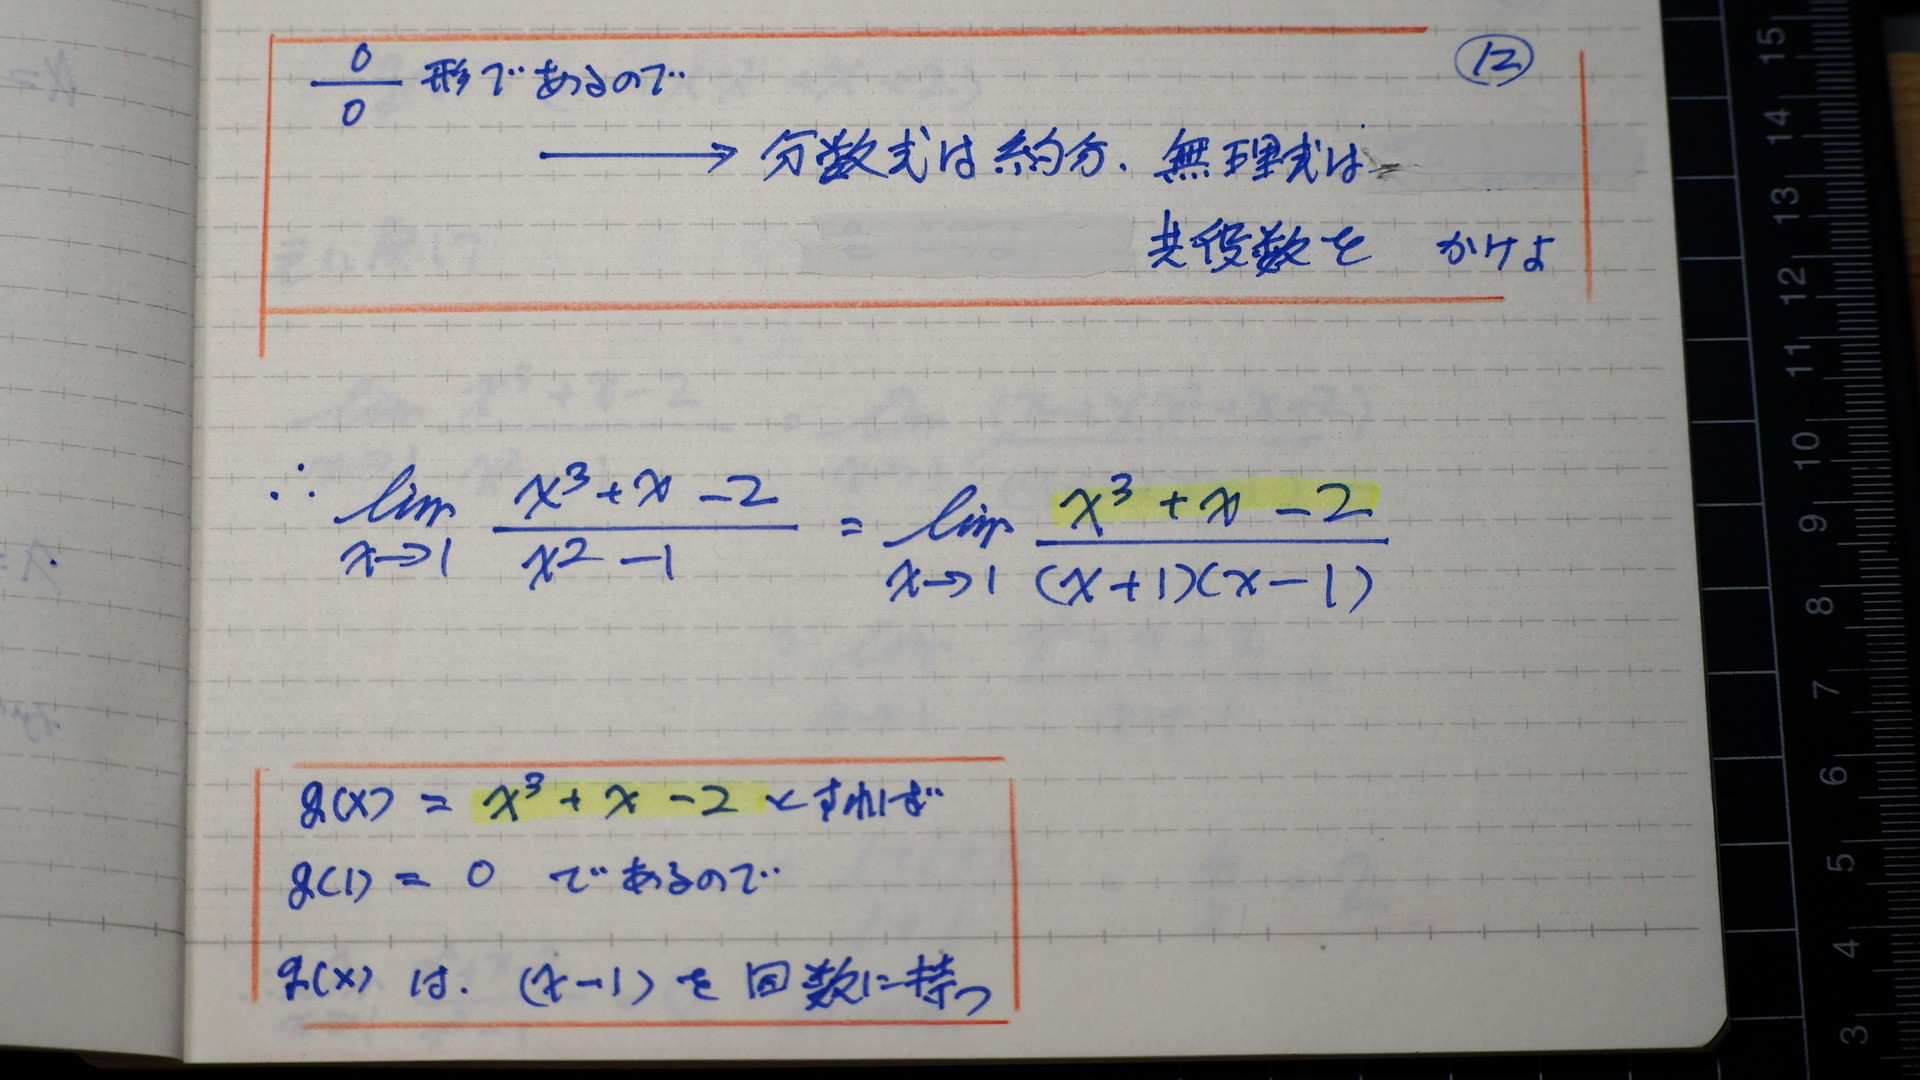 ⑫
0/0 形であるので
→ 分数式は約分. 無理式は
共役数を かけよ
∴ lim x→1 (x³+x-2)/(x²-1) = lim x→1 (x³+x-2)/((x+1)(x-1))
g(x) = x³+x-2 とすれば
g(1) = 0 であるので
g(x) は. (x-1) を 回数に持つ
15
14
13
12
11
10
9
8
7
6
5
4
3